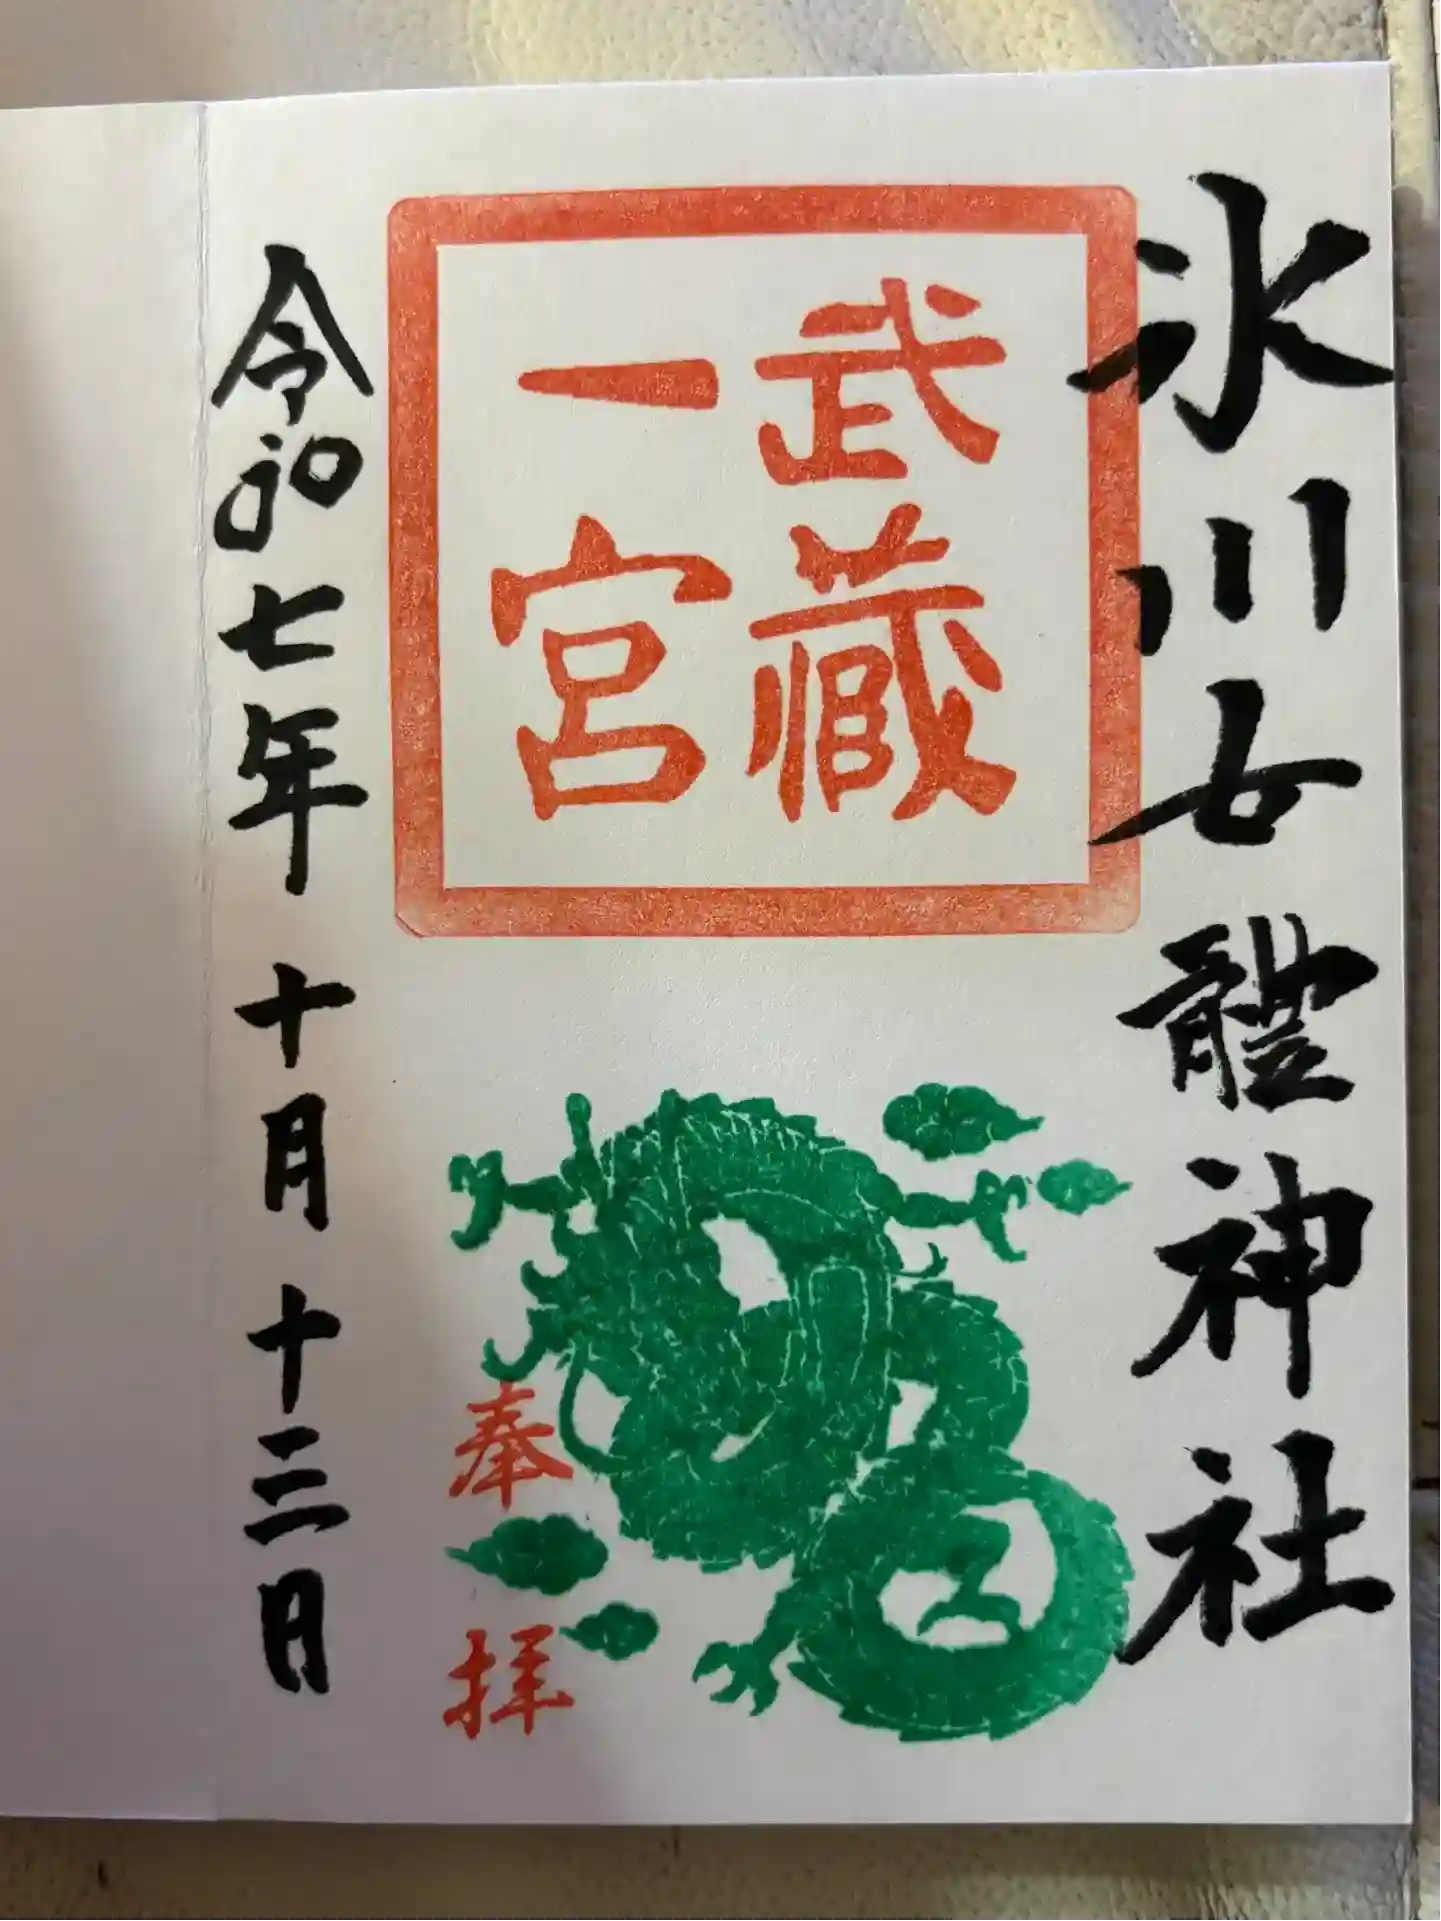 氷川女體神社
武蔵
一宮
奉拝
令和七年十月十三日